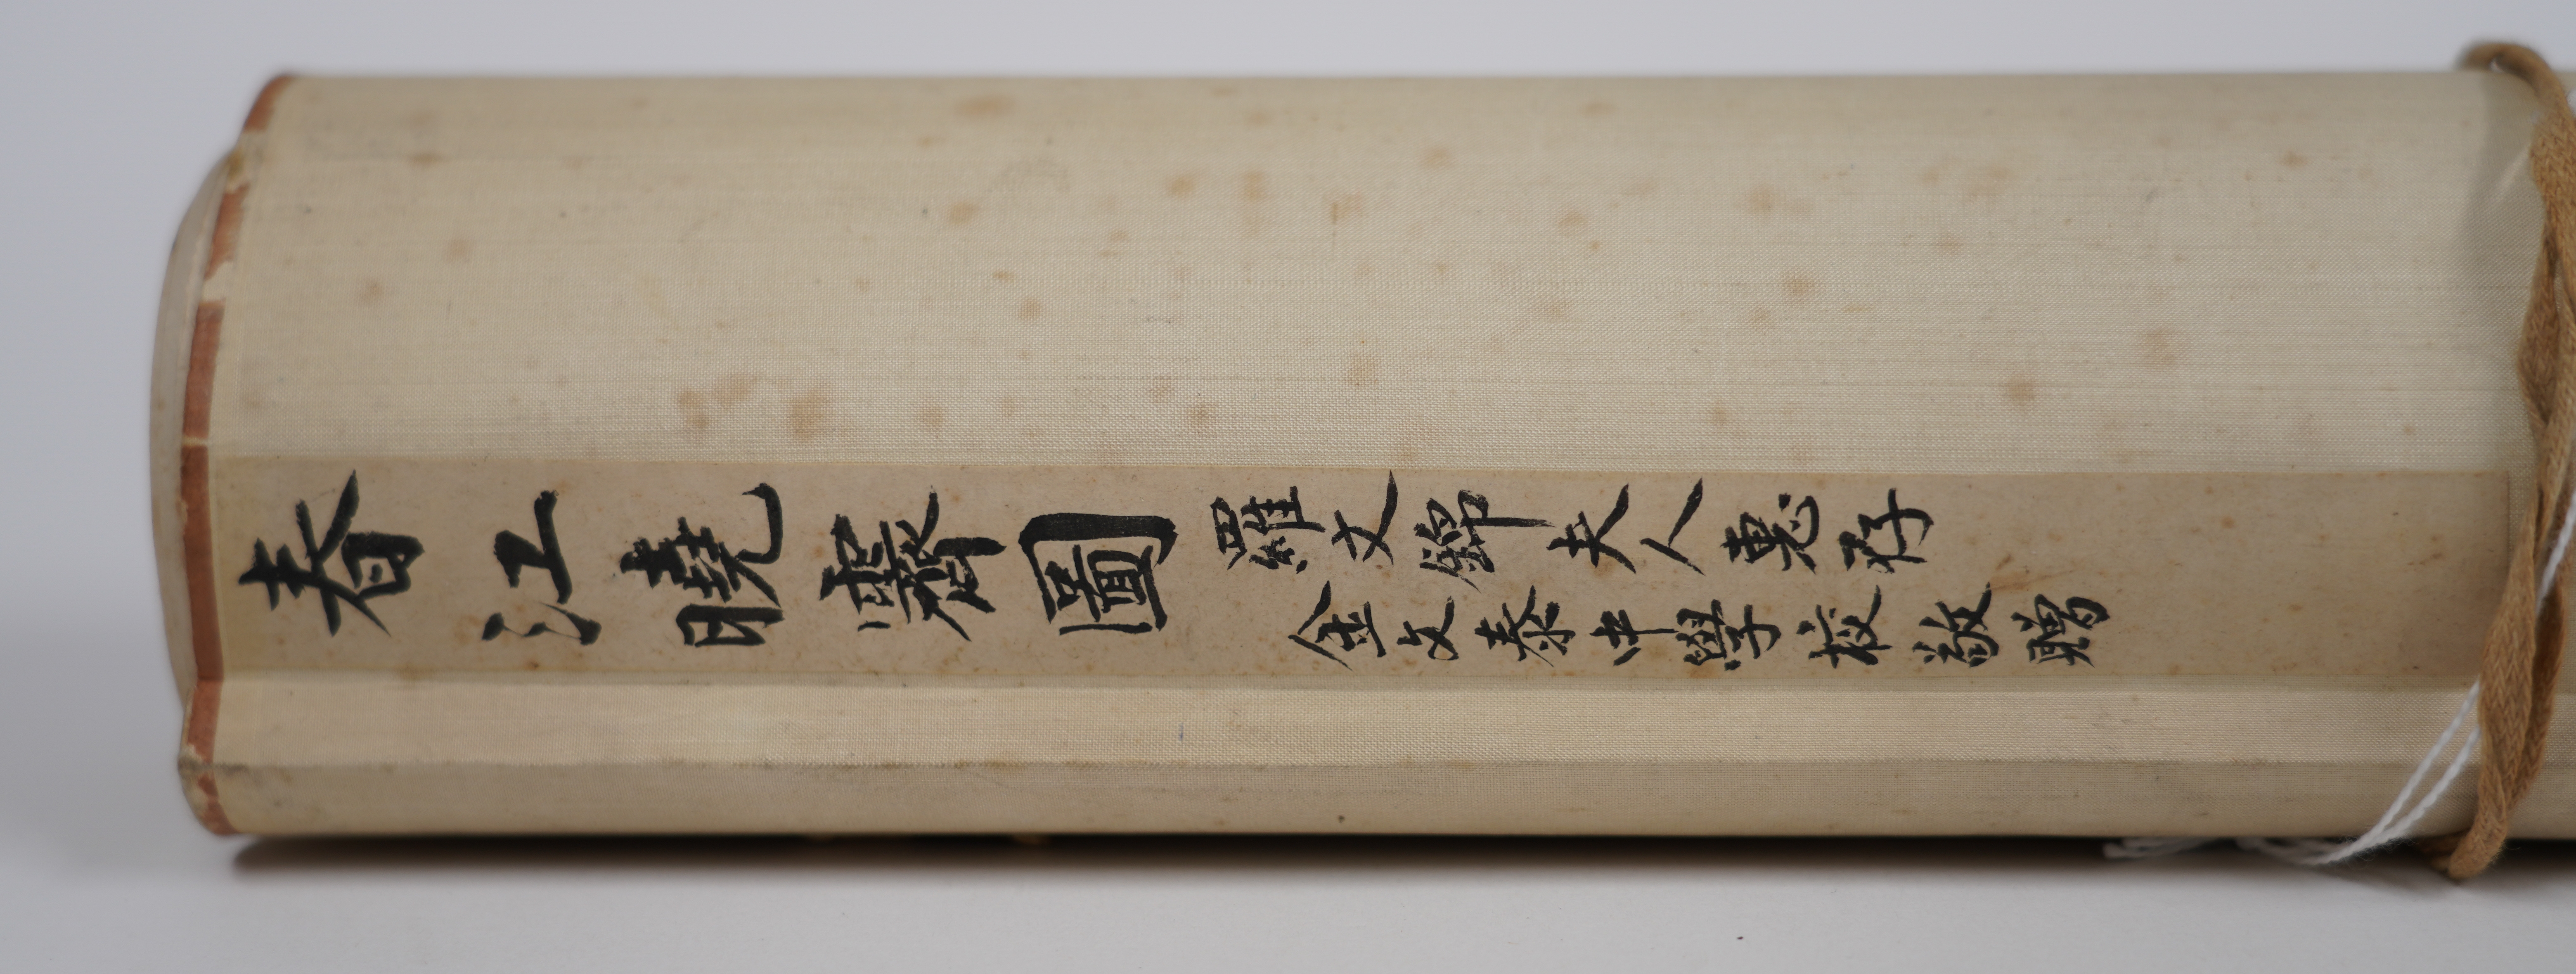 春江曉霽圖
羅文錦夫人惠存
金文泰中學校敬贈